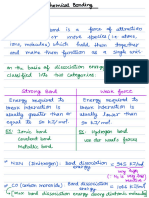 Chemical Bonding
bond is a force of attraction
or more species (i.e atom,
ions, molecules) which hold them together
and make them function as a single unit.
on the basis of dissociation energy
classified into two categories:
Strong bond
Weak force
Energy required to break interaction is ideally greater than or equal to 50 kJ/mol.
Energy required to break interaction is ideally less than 50 kJ/mol.
EX: Ionic bond
covalent bond
metallic bond
EX: Hydrogen bond
van der waals forces
N≡N (Dinitrogen) Bond dissociation energy
= 945 kJ/mol
very high
CO (carbon monoxide) Bond dissociation
(*max bond dissociation energy among diatomic molecules)